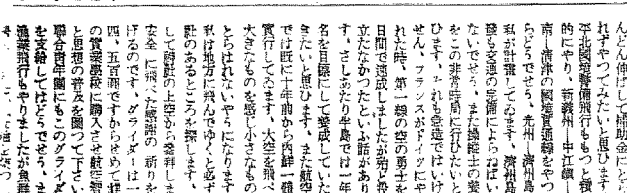 んどん伸ばして補助金にしと
れずやつてみたいと思ひます
平北國境警備飛行ももつと積
的にやり、新義州―中江鎭
南―淸津の國境貫通線をやつ
らどうでせう、光州―濟州島
私が計畫してゐます、濟州島
發も交通の完備によらねばい
ないでせう、また操縱士の養
をこの非常時局に行ひたいと
ひます、これも急造ではいけ
せん、フランスがドイツにやら
れた時、第一線の空の勇士を
日間で速成しましたが殆と役
立たなかつたといふ話があり
す、さしあたり半島では一年
名を目標にして養成していた
きたいと思ひます、また航空
では既に十年前から內鮮一體
實行してゐます、大空を飛べ
大きなものを感じ小さなもの
とらはれないやうになります
私は地方に飛んでゆくと必ず
社のあるところを探します、
して神社の上空から參拜しま
安全に飛べた感謝の祈りを
げるのです、グライダーは一
四、五百圓ですからせめて華
の實業學校に購入させ航空智
と思想の普及を圖つて下さい
聯合青年團にもこのグライダ
を支給してはどうでせう、ま
漁業飛行もやりましたが魚群